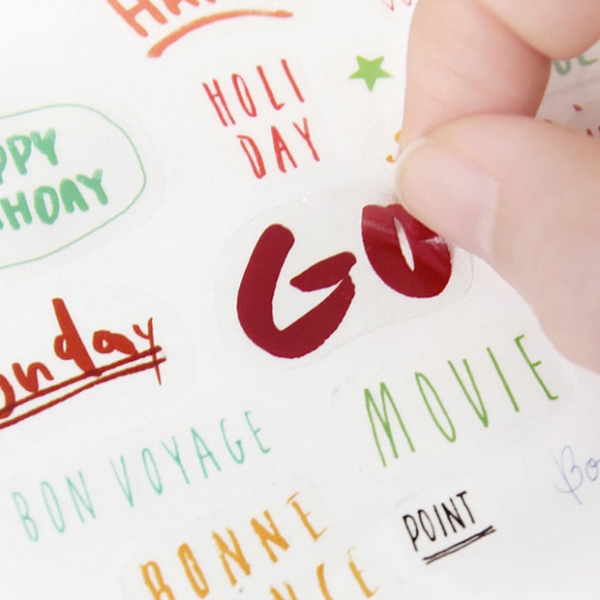 HOLI
DAY
PPY
HDAY
GO
onday
MOVIE
BON VOYAGE
BONNE
POINT
Bo